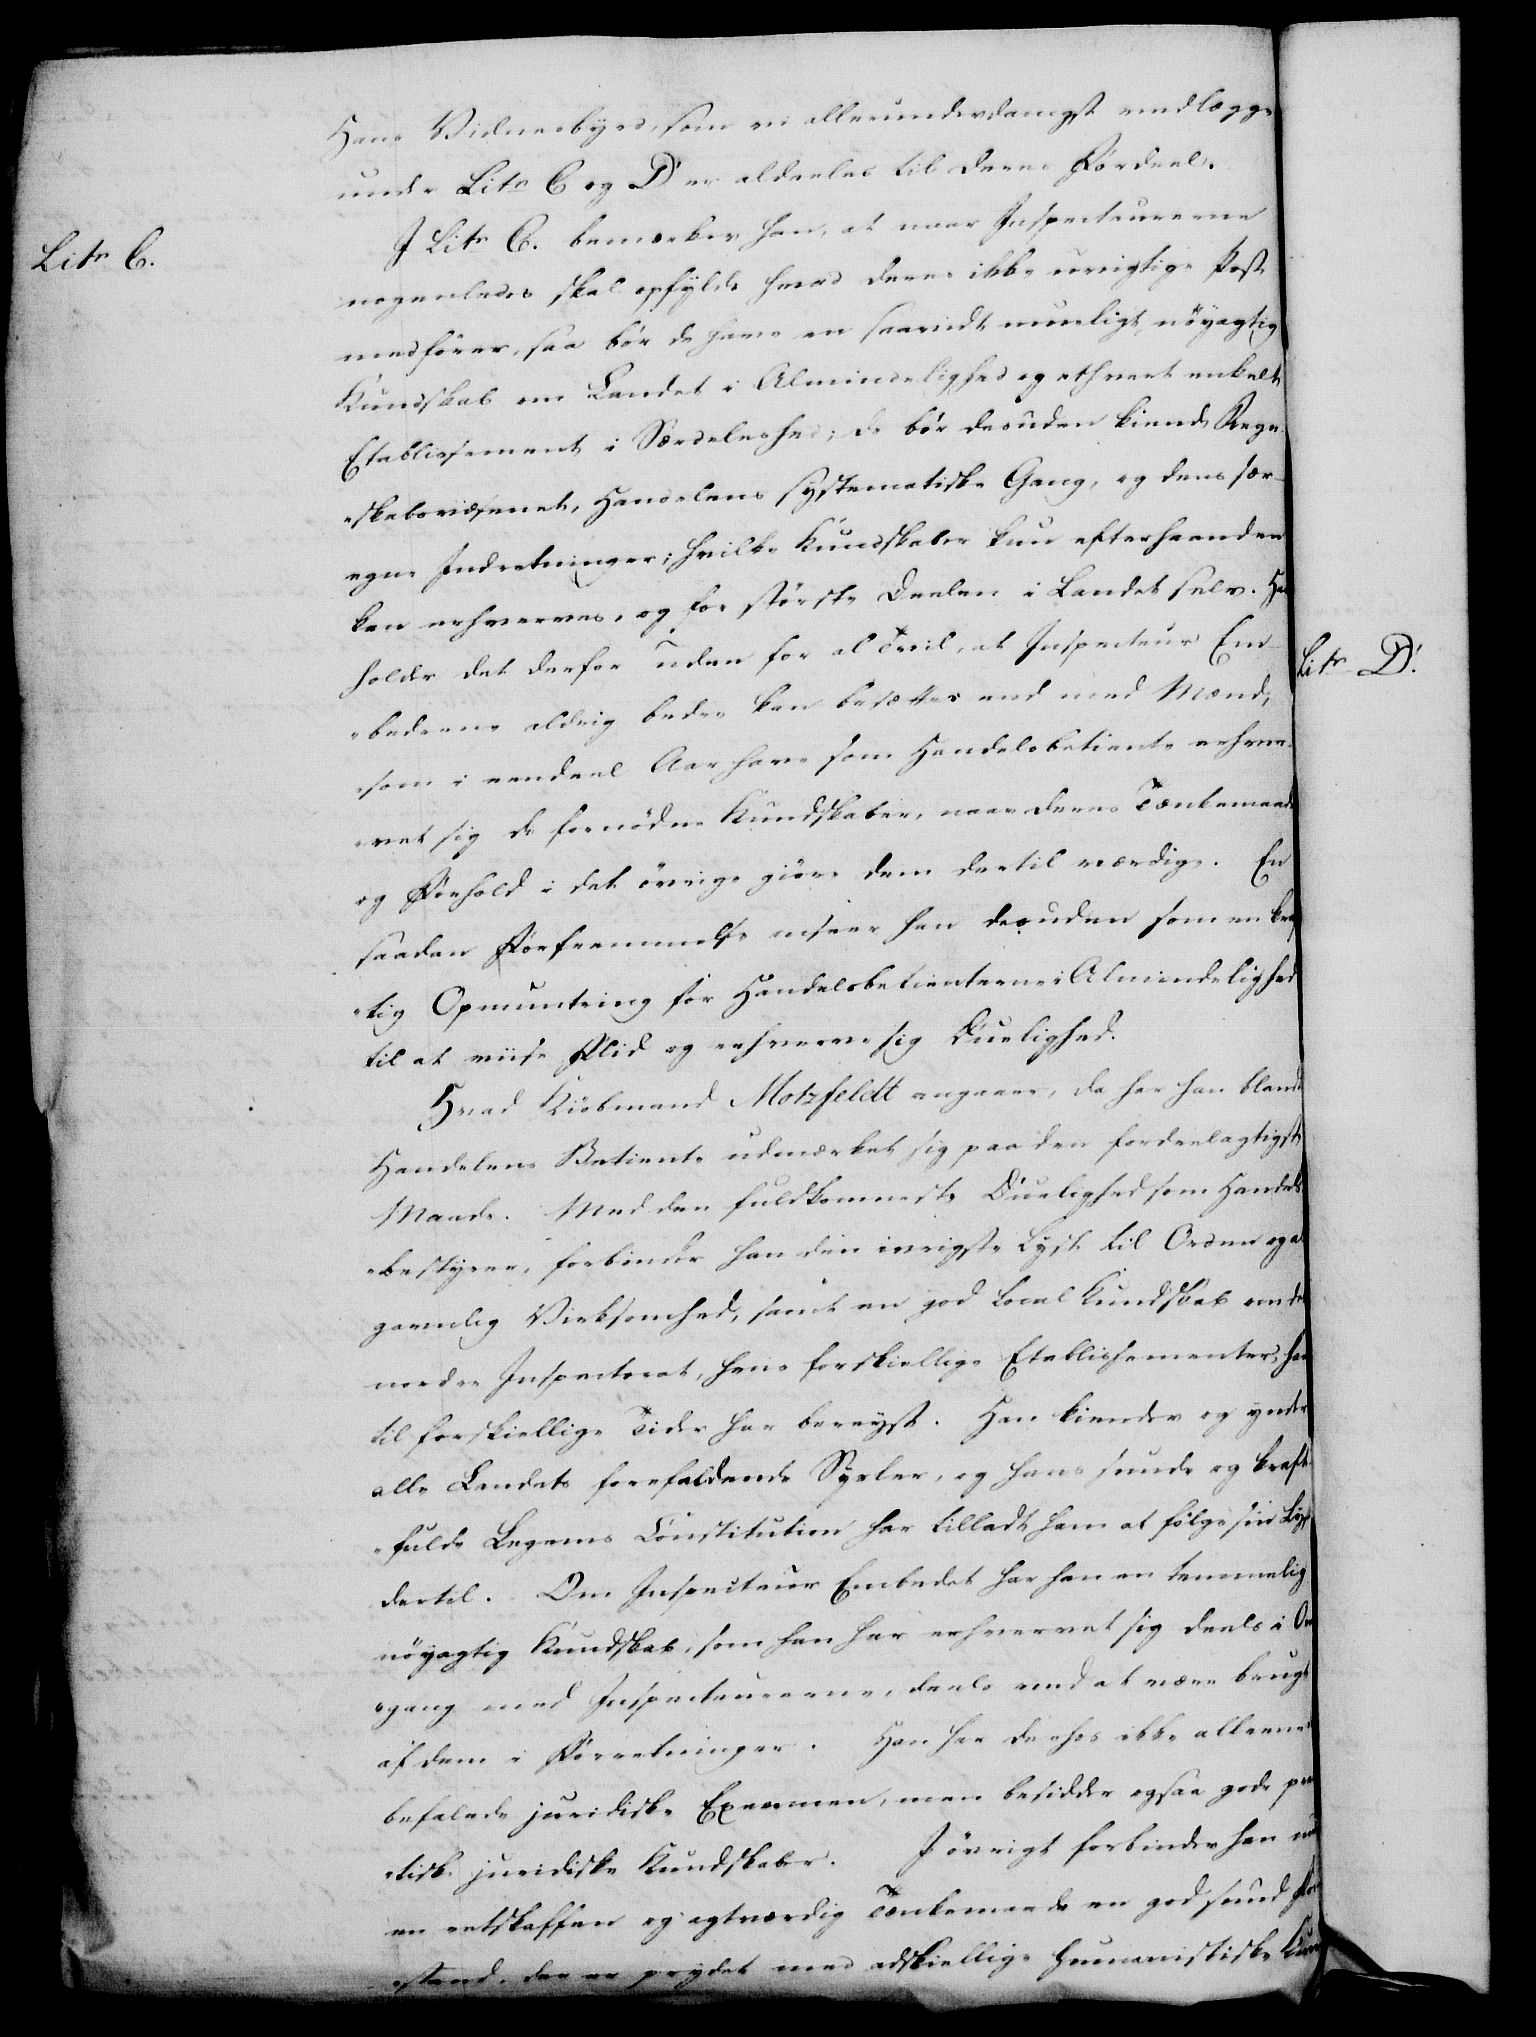 Hans Vidnesbyrd, som vi allerunderdanigst vedlægge
under Litr C og D er aldeeles til deres Fordeel.
Litr C.
I Litr C. bemærker han, at naar Inspecteurerne
nogenledes skal opfylde hvad deres ikke uvigtige Post
medfører, saa bør de have en saavidt mueligt nöyagtig
Kundskab om Landet i Almindelighed og ethvert enkelt
Etablissement i Særdeleshed; de bör desuden kiende Regn-
skabsvæsenet, Handelens systematiske Gang, og dens sær-
egne Indretninger; hvilke Kundskaber kun efterhaanden
kan erhverves, og for største Deelen i Landet selv. Han
holder det derfor uden for al Tvil, at Inspecteur Em-
bederne aldrig bedre kan besættes end med Mænd,
som i eendeel Aar have som Handelsbetiente erhver-
vet sig de fornödne Kundskaber, naar deres Tænkemaade
og Forhold i det övrige giöre dem dertil værdige. En
saadan Forfremmelse anseer han desuden som en kraf-
tig Opmuntring for Handelsbetienterne i Almindelighed
til at viise Flid og erhverve sig Duelighed.
Litr D.
Hvad Kiöbmand Motzfeldt angaaer, da har han blandt
Handelens Betiente udmærket sig paa den fordeelagtigste
Maade. Med den fuldkomneste Duelighed som Handels-
bestyrer, forbinder han den ivrigste Lyst til Orden og al
gavnlig Virksomhed, samt en god Local Kundskab om det
nordre Inspectorat, hvis forskiellige Etablissementer, han
til forskiellige Tider har bereyst. Han kiender og ynder
alle Landets forefaldende Sysler, og hans sunde og kraft-
fulde Legems Constitution har tilladt ham at fölge sin Lyst
dertil. Om Inspecteur Embedet har han en temmelig
nöyagtig Kundskab, som han har erhvervet sig deels i Om-
gang med Inspecteurerne, deels ved at være brugt
af dem i Forretninger. Han har derhos ikke alleene
befalede juridiske Examen, men besidder ogsaa gode prac-
tisk juridiske Kundskaber. I övrigt forbinder han med
en retskaffen og agtværdig Tænkemaade en god sund For-
stand, der er prydet med adskiellige humanistiske Kund-